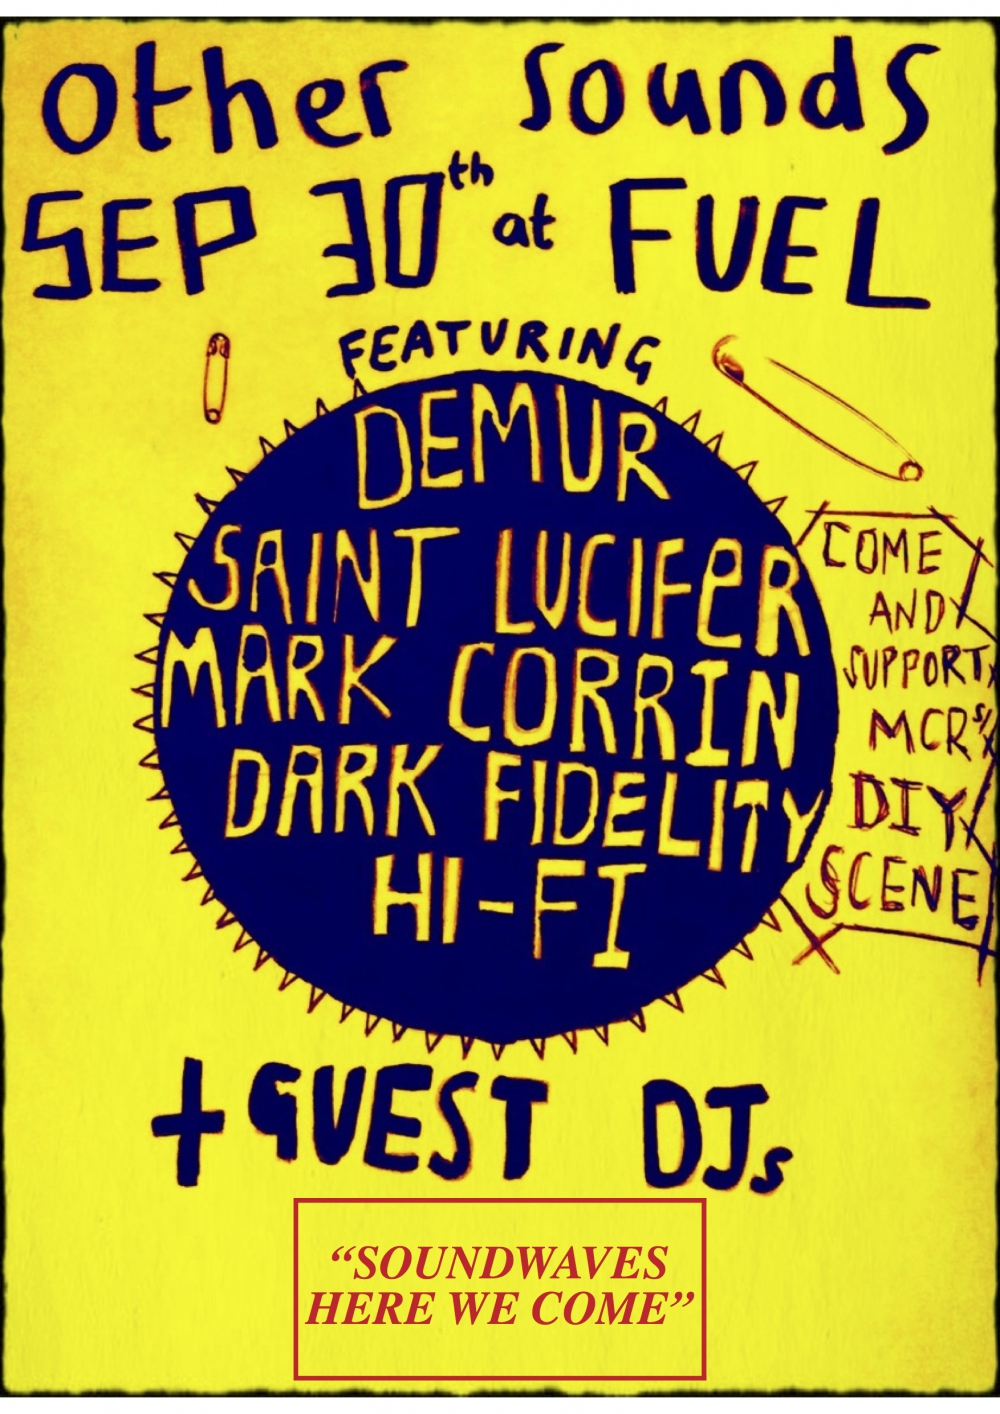 Other Sounds
SEP 30th at FUEL
FEATURING
DEMUR
SAINT LUCIFER
MARK CORRIN
DARK FIDELITY
HI-FI
COME
AND
SUPPORT
MCR's
DIY
SCENE
+ GUEST DJs
“SOUNDWAVES
HERE WE COME”